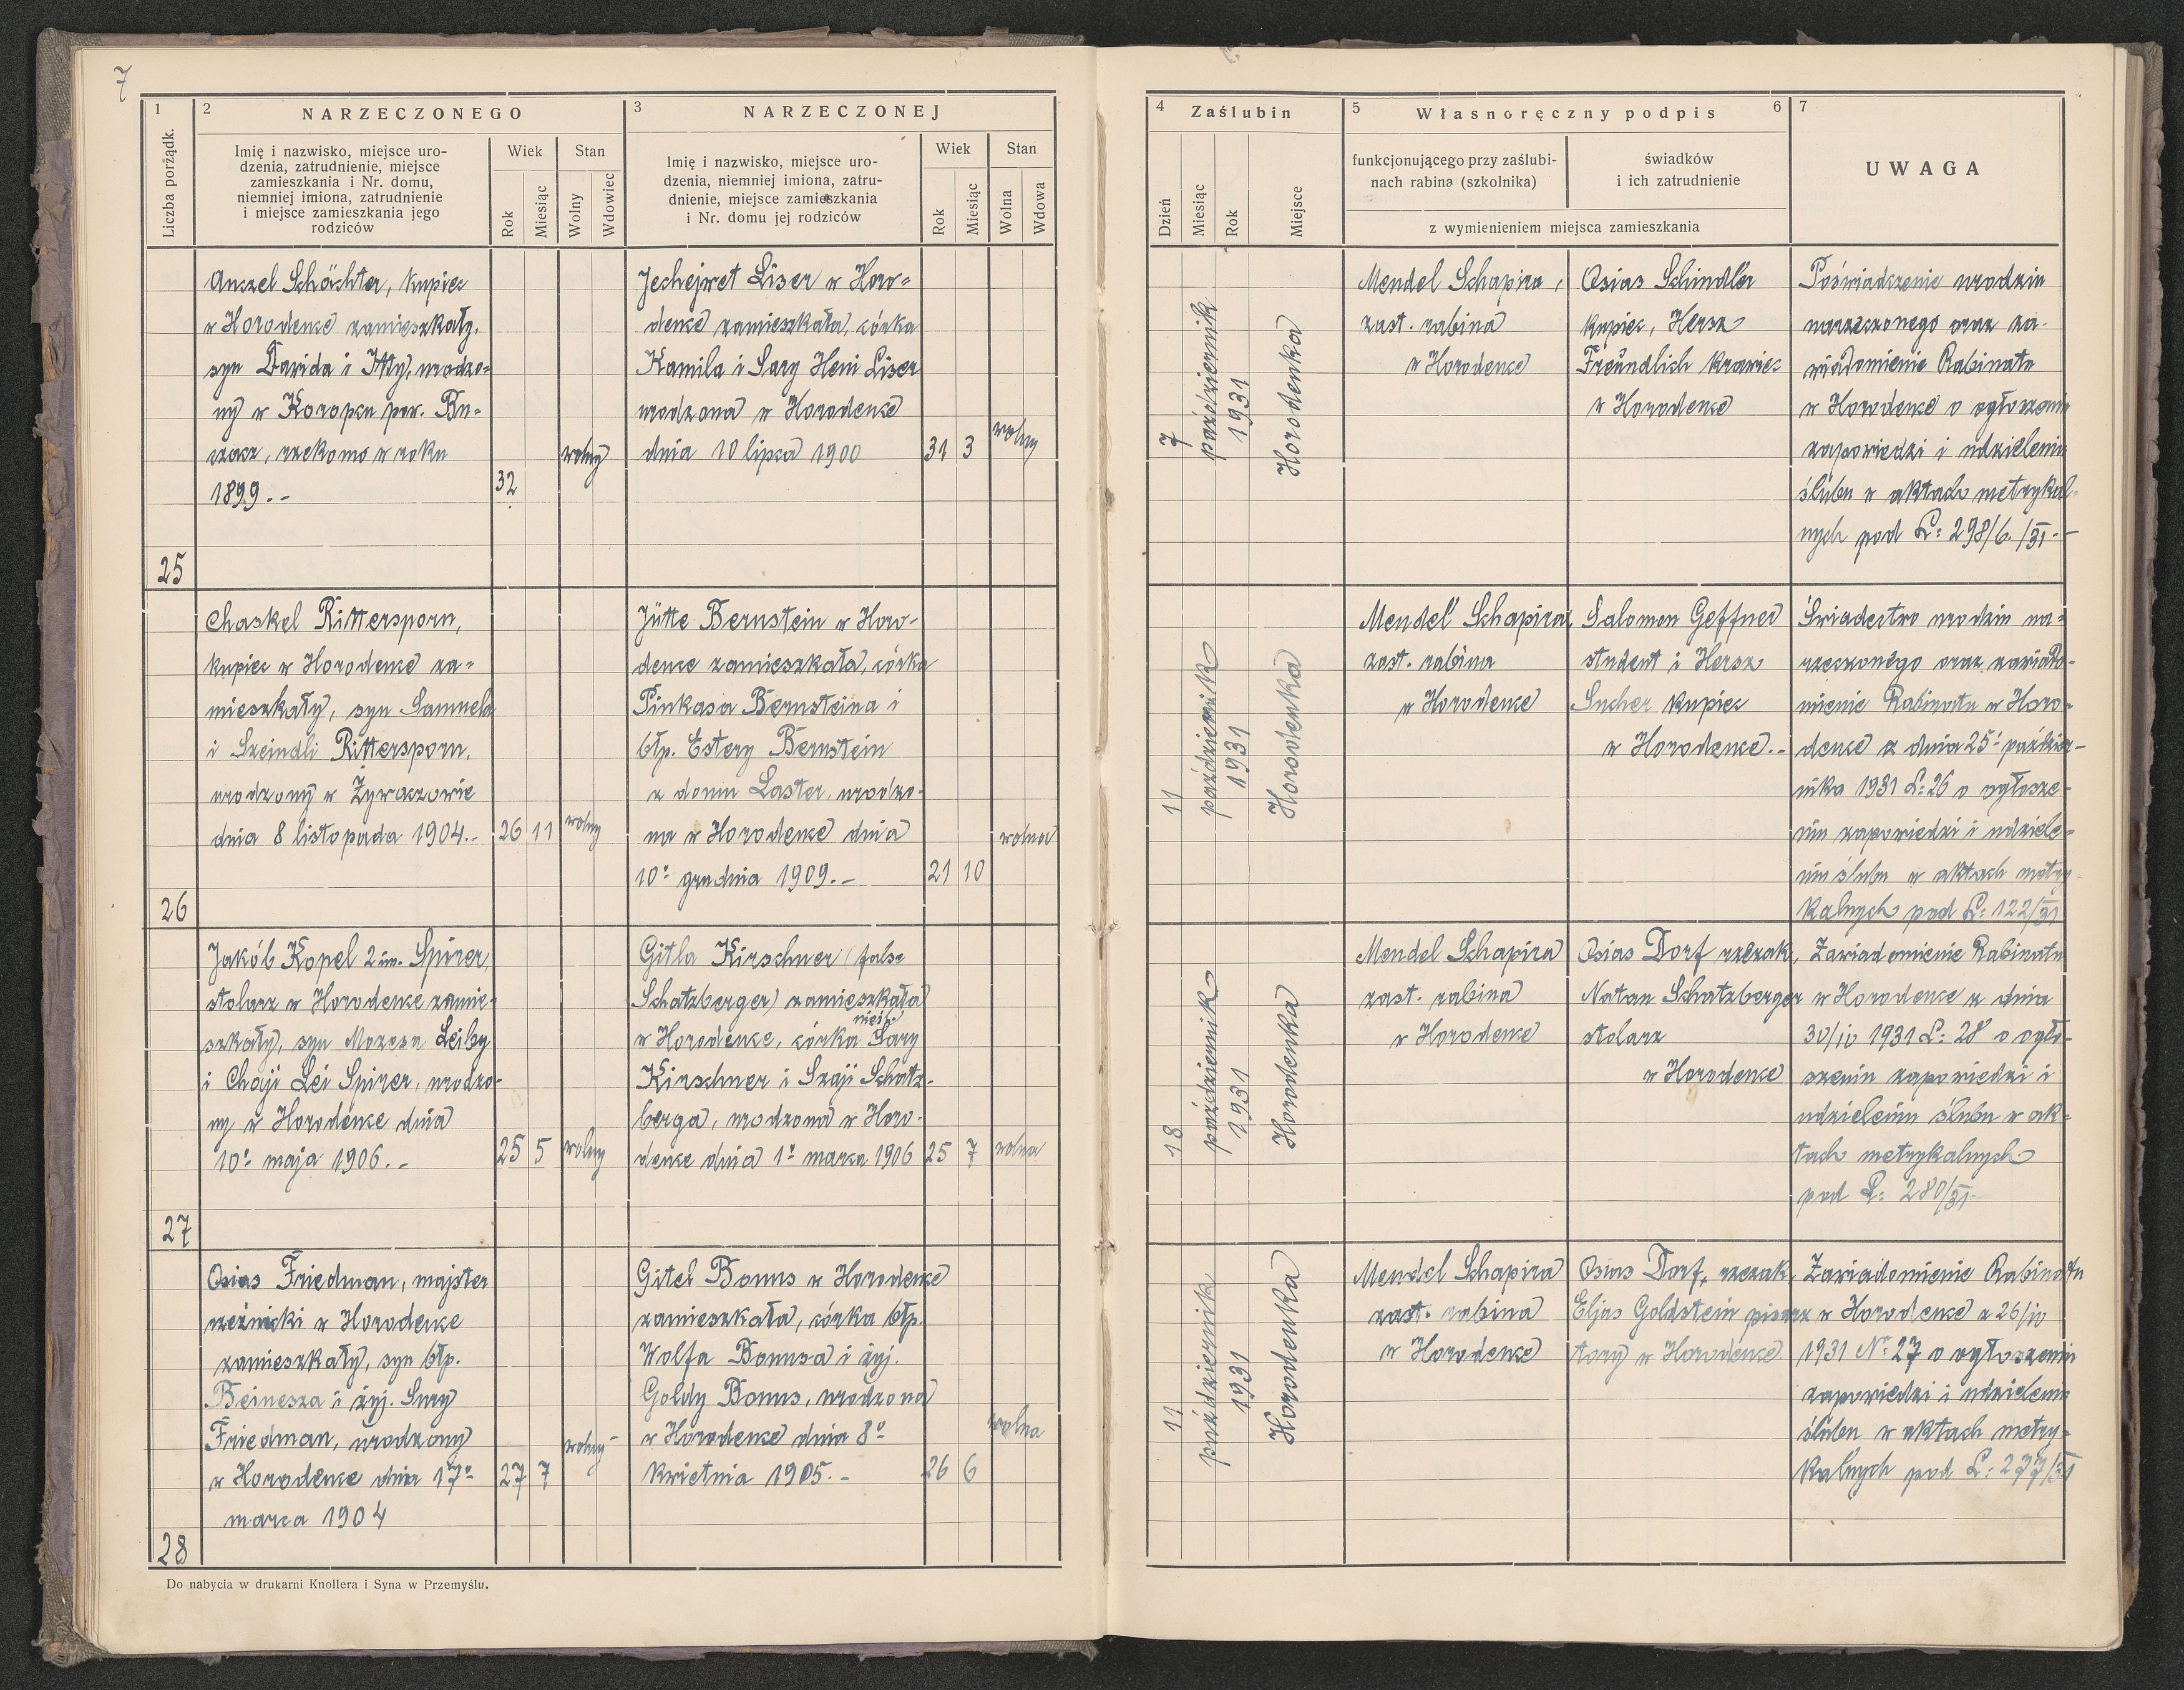 7
1
2
NARZECZONEGO
3
NARZECZONEJ
Liczba porządk.
Imię i nazwisko, miejsce uro-
dzenia, zatrudnienie, miejsce
zamieszkania i Nr. domu,
niemniej imiona, zatrudnienie
i miejsce zamieszkania jego
rodziców
Wiek
Stan
Rok
Miesiąc
Wolny
Wdowiec
Imię i nazwisko, miejsce uro-
dzenia, niemniej imiona, zatru-
dnienie, miejsce zamieszkania
i Nr. domu jej rodziców
Wiek
Stan
Rok
Miesiąc
Wolna
Wdowa
4
Zaślubin
5
Własnoręczny podpis
6
7
Dzień
Miesiąc
Rok
Miejsce
funkcjonującego przy zaślubi-
nach rabina (szkolnika)
świadków
i ich zatrudnienie
z wymienieniem miejsca zamieszkania
UWAGA
25
Anszel Schächter, kupiec
w Horodence zamieszkały,
syn Dawida i Itty, urodzo-
ny w Koropcu pow. Bu-
czacz, rzekomo w roku
1899.-
32
wolny
Jechejwet Liser w Horo-
dence zamieszkała, córka
Kamila i Sary Heni Liser
urodzona w Horodence
dnia 10 lipca 1900
31 3
wolny
7
październik
1931
Horodenka
Mendel Schapira,
zast. rabina
w Horodence
Osias Schindler
kupiec, Hersz
Freundlich krawiec
w Horodence
Poświadczenie urodzin
narzeczonego oraz za-
wiadomienie Rabinatu
w Horodence o ogłoszeniu
zapowiedzi i udzieleniu
ślubu w aktach metrykal-
nych pod L: 298/6./31.-
26
Chaskel Rittersporn,
kupiec w Horodence za-
mieszkały, syn Samuela
i Szeindli Rittersporn,
urodzony w Żywaczowie
dnia 8 listopada 1904.-
26 11
wolny
Jütte Bernstein w Horo-
dence zamieszkała, córka
Pinkasa Bernsteina i
błp. Estery Bernstein
z domu Laster, urodzo-
na w Horodence dnia
10º grudnia 1909.-
21 10
wolna
11
październik
1931
Horodenka
Mendel Schapira
zast. rabina
w Horodence
Salomon Geffner
student i Hersz
Sucher kupiec
w Horodence.-
Świadectwo urodzin na-
rzeczonego oraz zawiado-
mienie Rabinatu w Horo-
dence z dnia 25 paździer-
nika 1931 L: 26 o ogłosze-
niu zapowiedzi i udziele-
niu ślubu w aktach metry-
kalnych pod L: 122/31
27
Jakób Kopel 2 im. Spirer,
stolarz w Horodence zamie-
szkały, syn Mozesa Leiby
i Chaji Lei Spirer, urodzo-
ny w Horodence dnia
10º maja 1906.-
25 5
wolny
Gitla Kirschner (false
Schatzberger) zamieszkała
w Horodence, córka nieśl. Sary
Kirschner i Szaji Schatz-
berga, urodzona w Horo-
dence dnia 1º marca 1906
25 7
wolna
18
październik
1931
Horodenka
Mendel Schapira
zast. rabina
w Horodence
Osias Dorf rzezak,
Natan Schatzberger
stolarz
w Horodence
Zawiadomienie Rabinatu
w Horodence z dnia
30/10 1931 L: 28 o ogło-
szeniu zapowiedzi i
udzieleniu ślubu w ak-
tach metrykalnych
pod L: 280/31-
28
Osias Friedman, majster
rzeźnicki w Horodence
zamieszkały, syn błp.
Beinesza i żyj. Sury
Friedman, urodzony
w Horodence dnia 17º
marca 1904
27 7
wolny
Gitel Bonus w Horodence
zamieszkała, córka błp.
Wolfa Bonusa i żyj.
Goldy Bonus, urodzona
w Horodence dnia 8º
kwietnia 1905.-
26 6
wolna
11
październik
1931
Horodenka
Mendel Schapira
zast. rabina
w Horodence
Osias Dorf, rzezak,
Eljas Goldstein pisarz
w Horodence
Zawiadomienie Rabinatu
w Horodence z 26/10
1931 Nº 27 o ogłoszeniu
zapowiedzi i udzieleniu
ślubu w aktach metry-
kalnych pod L: 277/31
Do nabycia w drukarni Knollera i Syna w Przemyślu.